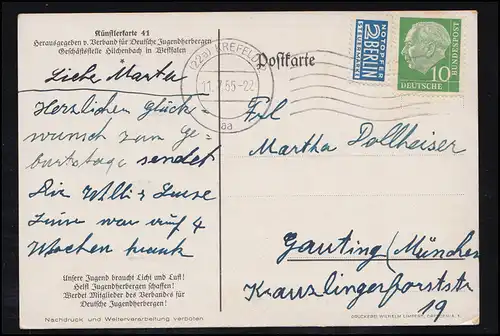 Künstlerkarte 41
Herausgegeben v. Verband für Deutsche Jugendherbergen
Geschäftsstelle Hilchenbach in Westfalen
*
Liebe Martha
Herzlichen Glück=
wunsch zum Ge=
burtstage sendet
Dir Willi & Luise
Luise war auf 4
Wochen krank
Unsere Jugend braucht Licht und Luft!
Helft Jugendherbergen schaffen!
Werdet Mitglieder des Verbandes für
Deutsche Jugendherbergen!
Nachdruck und Weiterverarbeitung verboten
(22a) KREFELD
11.7.55-22
aa
Postkarte
NOTOPFER
2 BERLIN
STEUERMARKE
10
DEUTSCHE
BUNDESPOST
Frl
Martha Dollheiser
Gauting (München
Kreuzlingerforststr
19
DRUCKEREI WILHELM